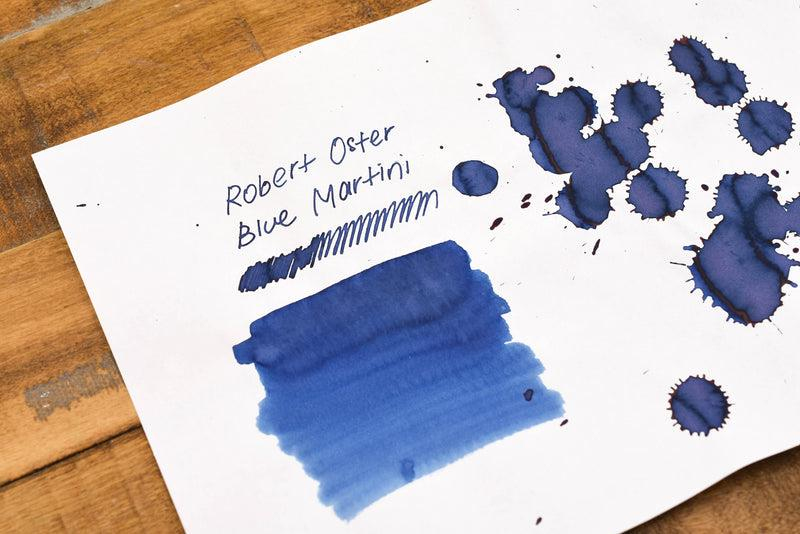 Robert Oster
Blue Martini